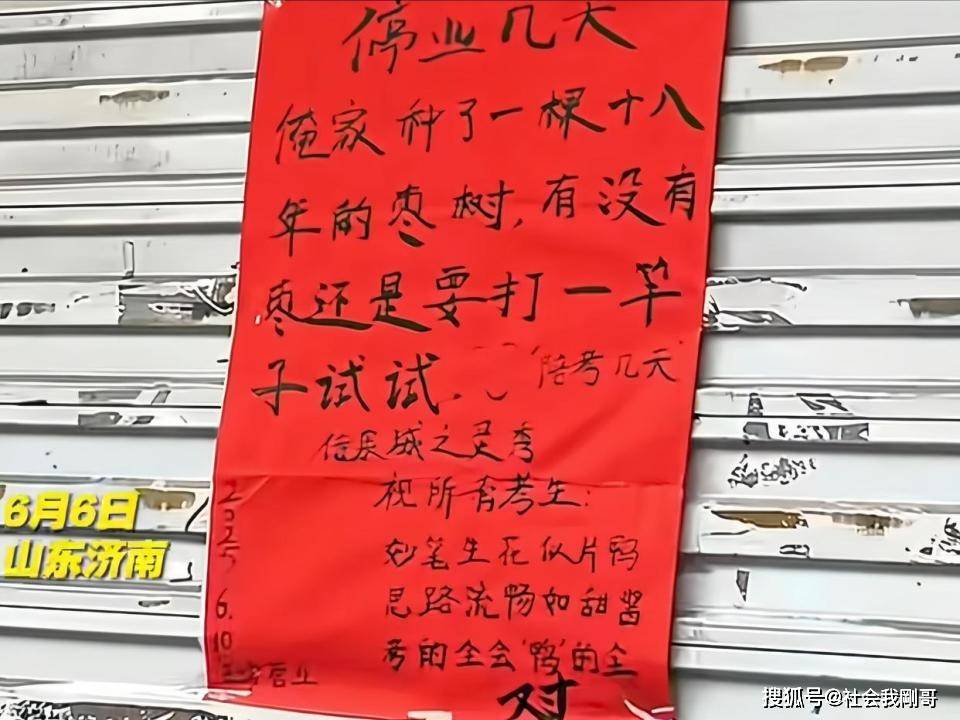 停业几天
俺家种了一棵十八
年的枣树,有没有
枣还是要打一竿
子试试.
"陪考几天"
视所有考生:
妙笔生花似片鸭
思路流畅如甜酱
考的全会"鸭"的全
对
2025
6.
10
营业
6月6日
山东济南
搜狐号@社会我刚哥